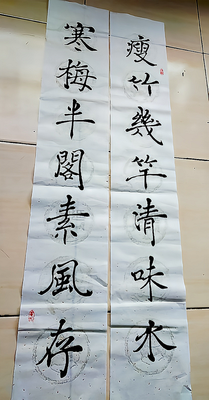 瘦竹幾竿清味水
寒梅半閣素風存